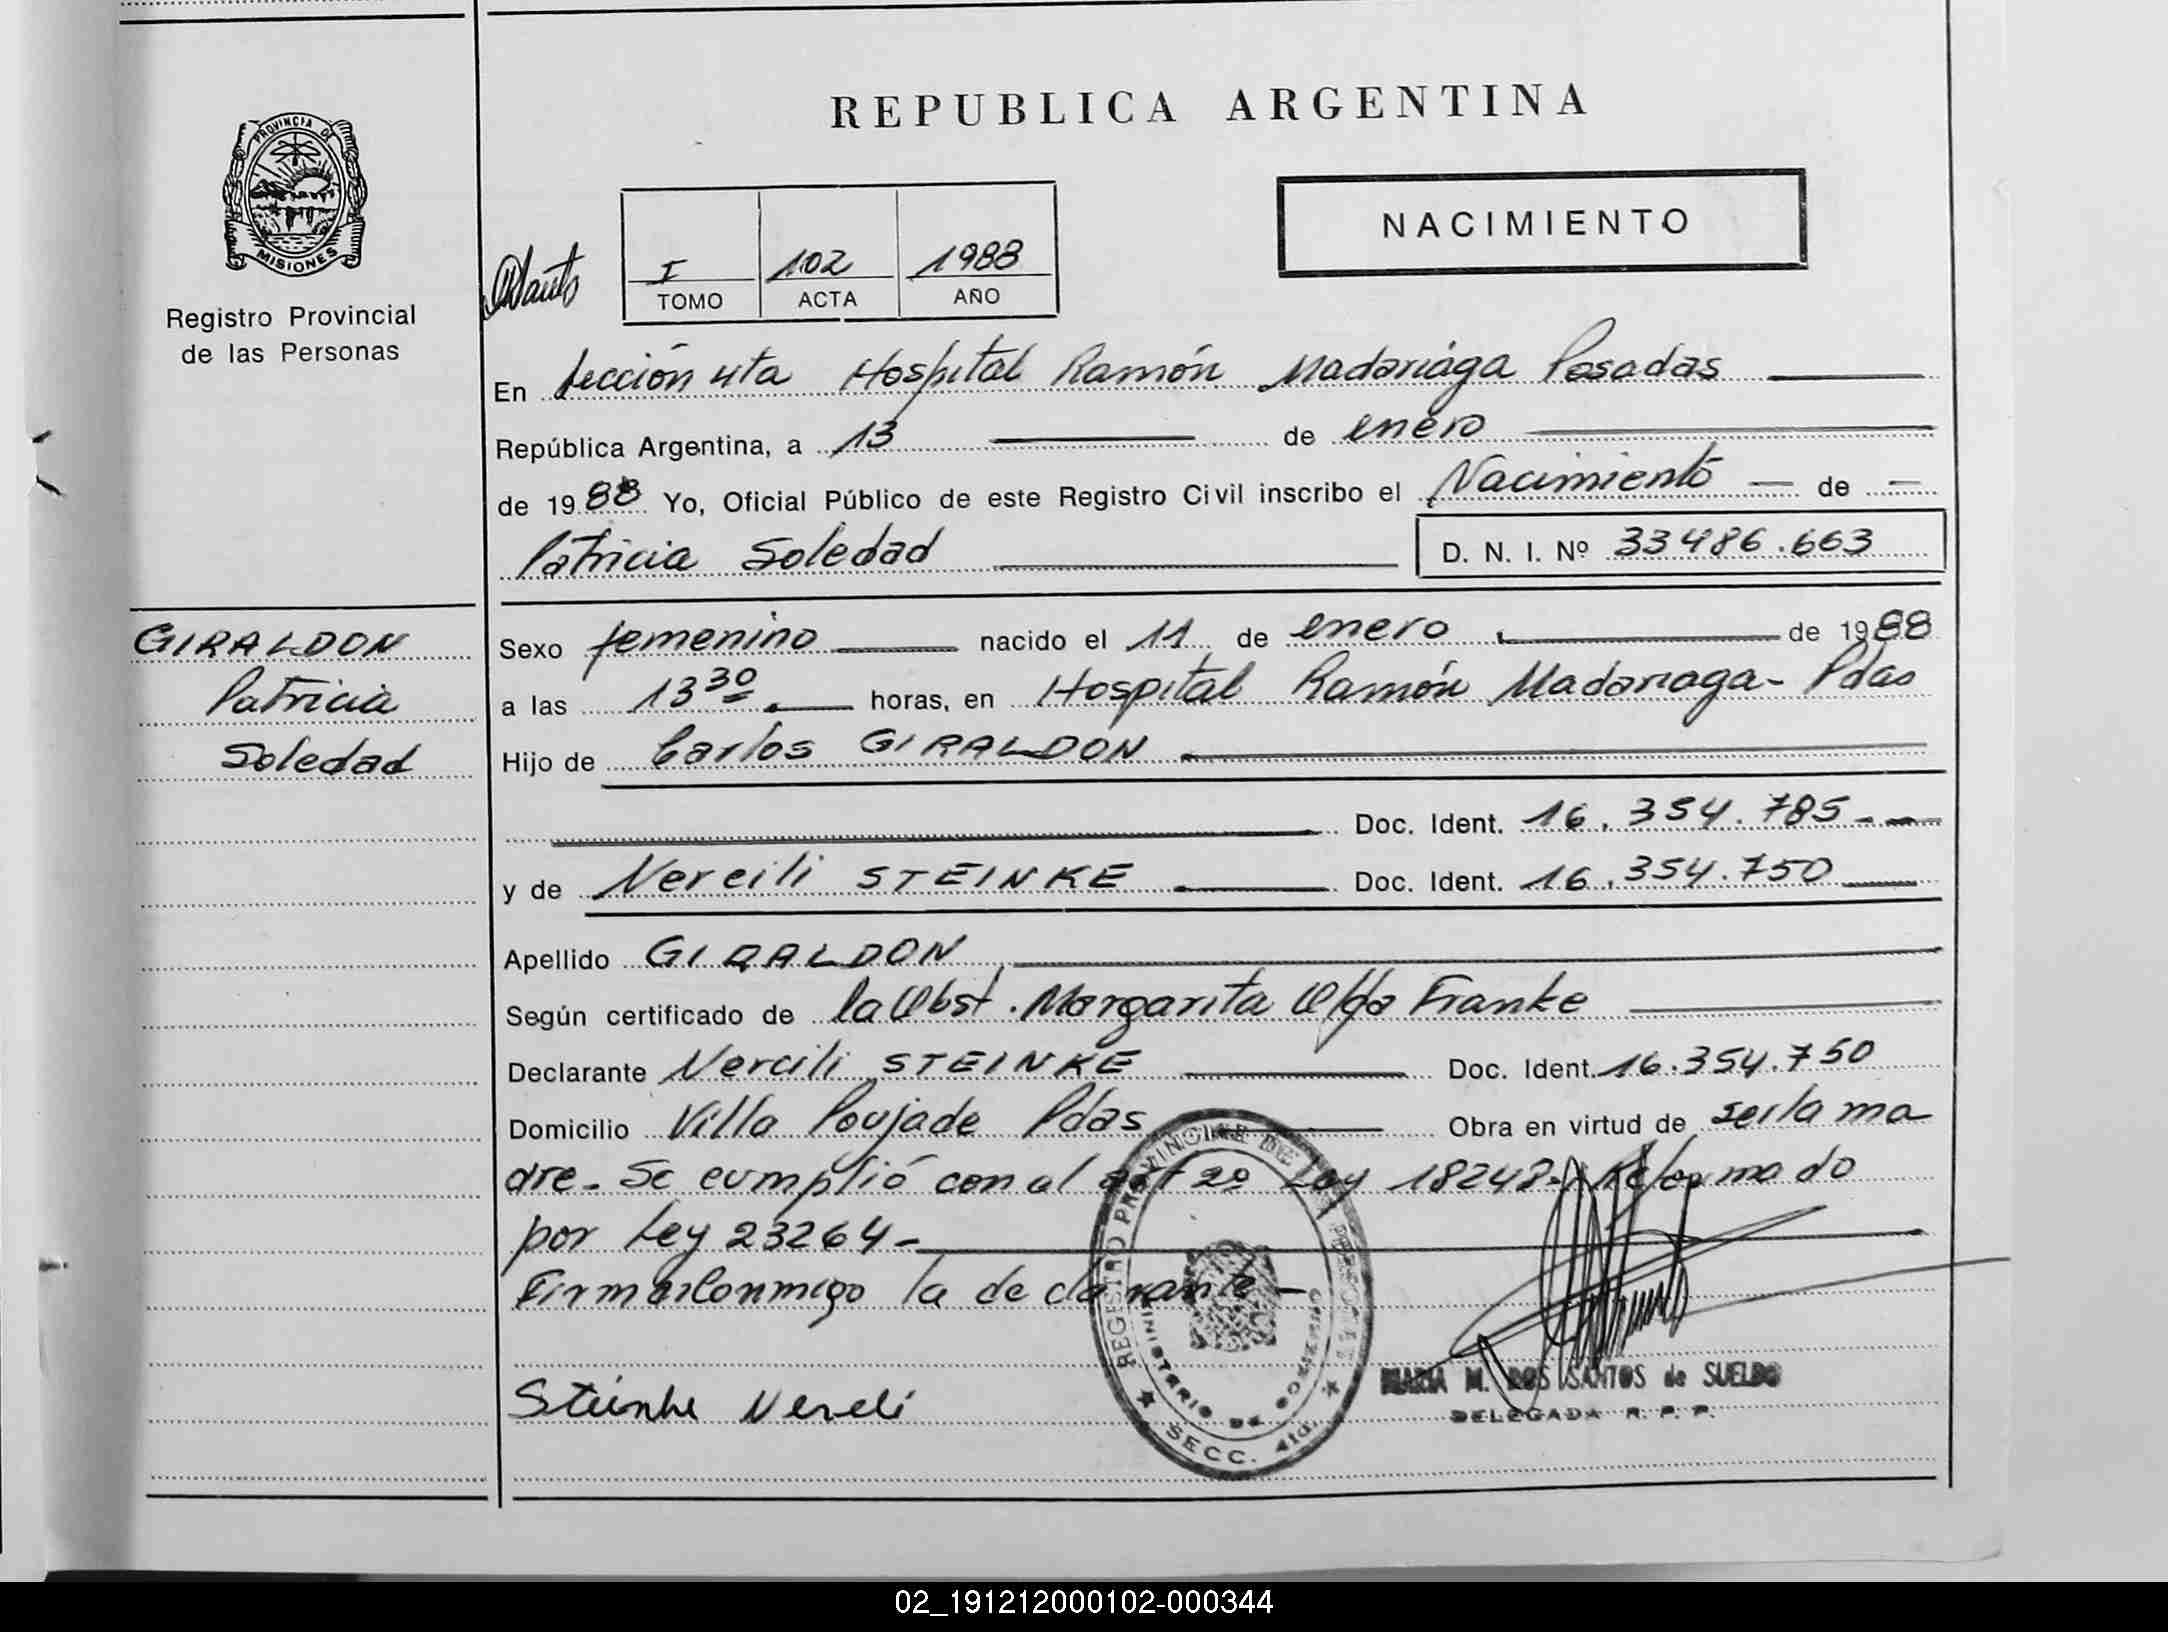 REPUBLICA ARGENTINA
PROVINCIA DE
MISIONES
Registro Provincial
de las Personas
NACIMIENTO
I 102 1988
TOMO ACTA AÑO
En Sección 4ta Hospital Ramón Madariaga Posadas
República Argentina, a 13 de enero
de 1988 Yo, Oficial Público de este Registro Civil inscribo el Nacimiento de
Patricia Soledad D. N. I. Nº 33486.663
GIRALDON
Patricia
Soledad
Sexo femenino nacido el 11 de enero de 1988
a las 13 30 horas, en Hospital Ramón Madariaga - Pdas
Hijo de Carlos GIRALDON
Doc. Ident. 16.354.785
y de Nercili STEINKE Doc. Ident. 16.354.750
Apellido GIRALDON
Según certificado de la Obst. Margarita Olga Franke
Declarante Nercili STEINKE Doc. Ident. 16.354.750
Domicilio Villa Poujade Pdas Obra en virtud de ser la ma
dre - Se cumplió con el art 2º Ley 18248 - Reformado
por Ley 23264 -
Firma conmigo la declarante -
Steinke
REGISTRO PROVINCIAL DE LAS PERSONAS
MINISTERIO DE GOBIERNO
SECC. 4ta.
MARIA M. DOS SANTOS de SUELDO
DELEGADA R. P. P.
02_191212000102-000344